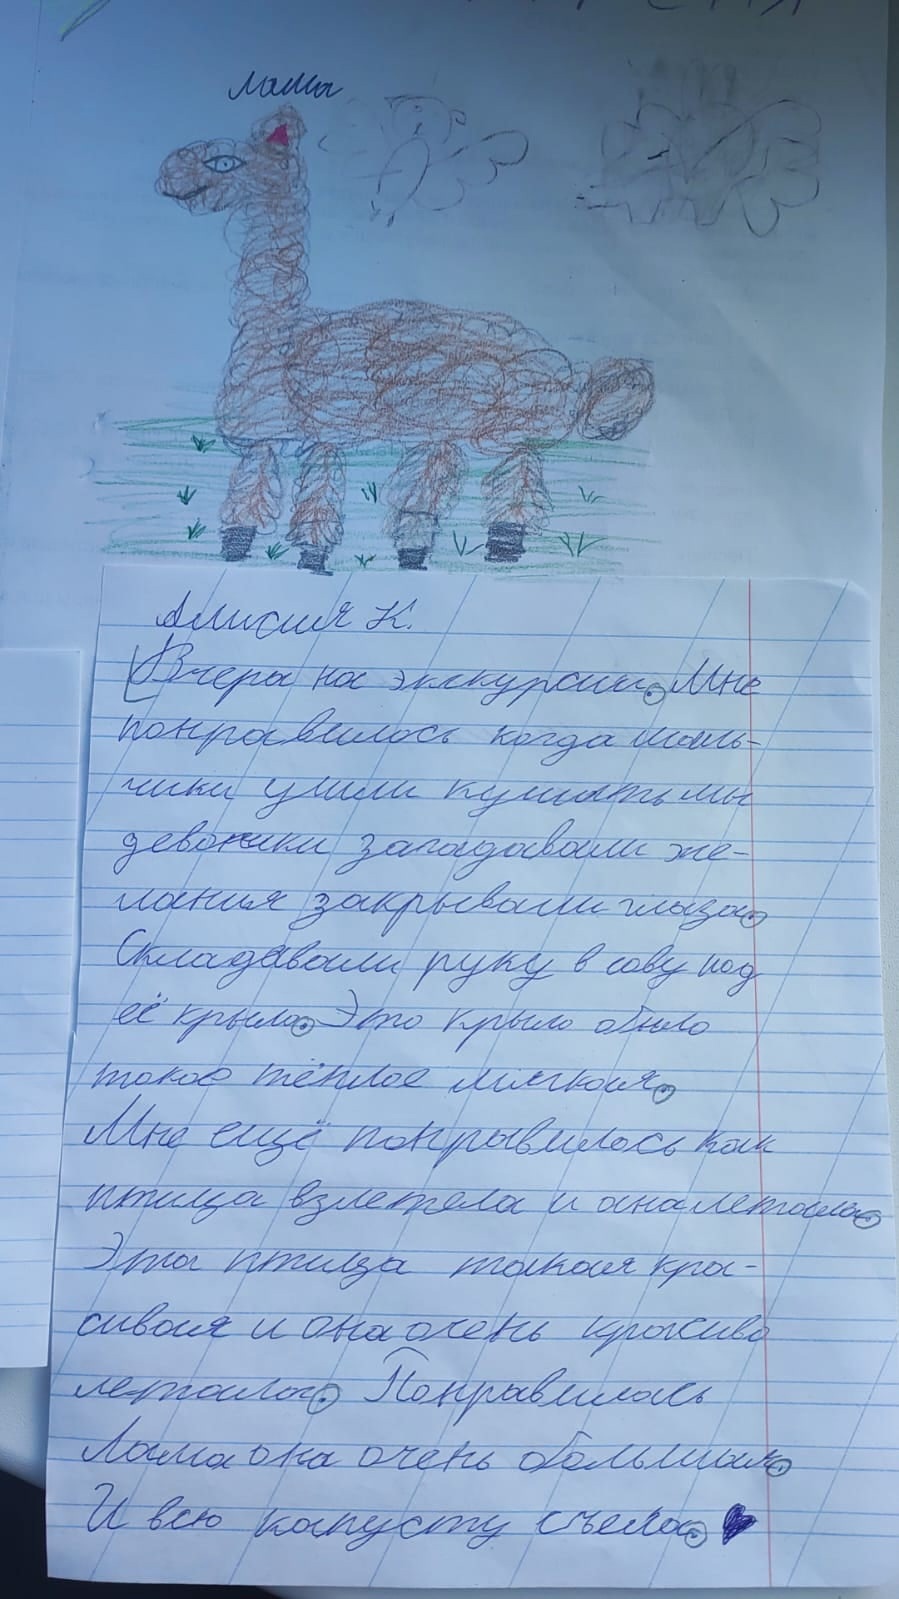 Лама
Алисия К.
Вчера на экскурсии. Мне
понравилось когда маль-
чики учили кушать мы
девочки загадавали же-
лания закрывали глаза.
Складавали руку в сову под
её крыло. Это крыло было
такое тёплое мягкая.
Мне ещё понравилось как
птица взлетела и она летала.
Эта птица такая кра-
сивая и она очень красиво
летала. Понравилась
Лама она очень большая.
И всю капусту съела.